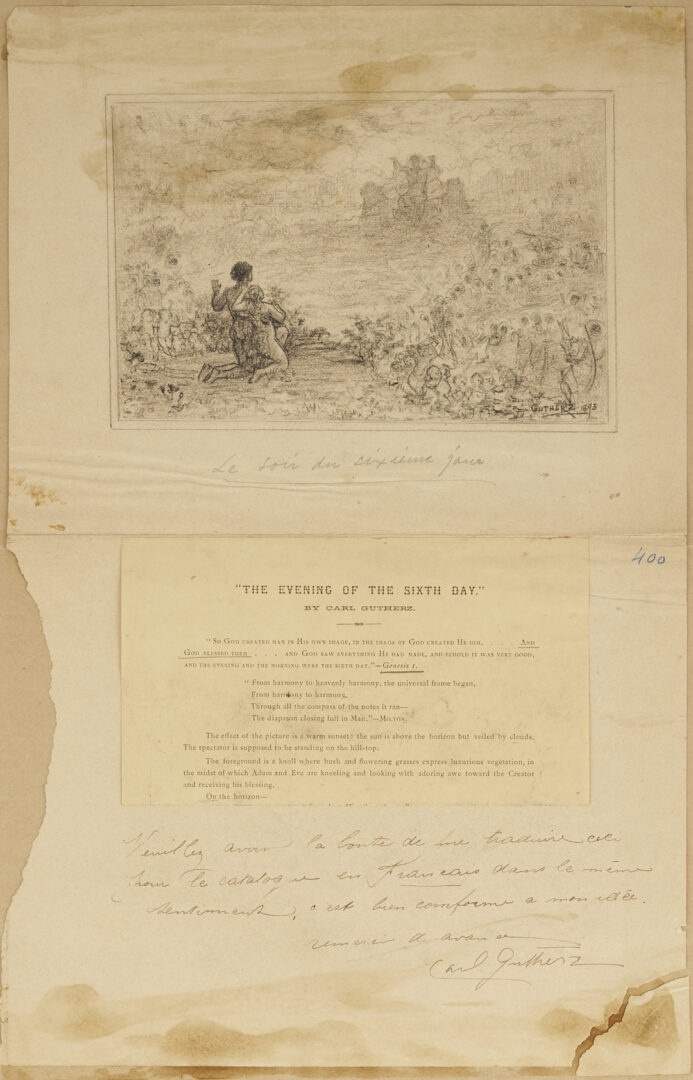 GUTHERZ 1893
Le soir du sixième jour
400
"THE EVENING OF THE SIXTH DAY."
BY CARL GUTHERZ.
"So God created man in His own image, in the image of God created He him, . . . And
God blessed them . . . and God saw everything He had made, and behold it was very good,
and the evening and the morning were the sixth day."—Genesis 1.
"From harmony to heavenly harmony, the universal frame began,
From harmony to harmony,
Through all the compass of the notes it ran—
The diapason closing full in Man."—Milton.
The effect of the picture is a warm sunset: the sun is above the horizon but veiled by clouds.
The spectator is supposed to be standing on the hill-top.
The foreground is a knoll where bush and flowering grasses express luxurious vegetation, in
the midst of which Adam and Eve are kneeling and looking with adoring awe toward the Creator
and receiving his blessing.
On the horizon—
Veuillez avoir la bonté de me traduire ceci
pour le catalogue en Francais dans le même
sentiment, c'est bien conforme a mon idée.
remercie d avance
Carl Gutherz